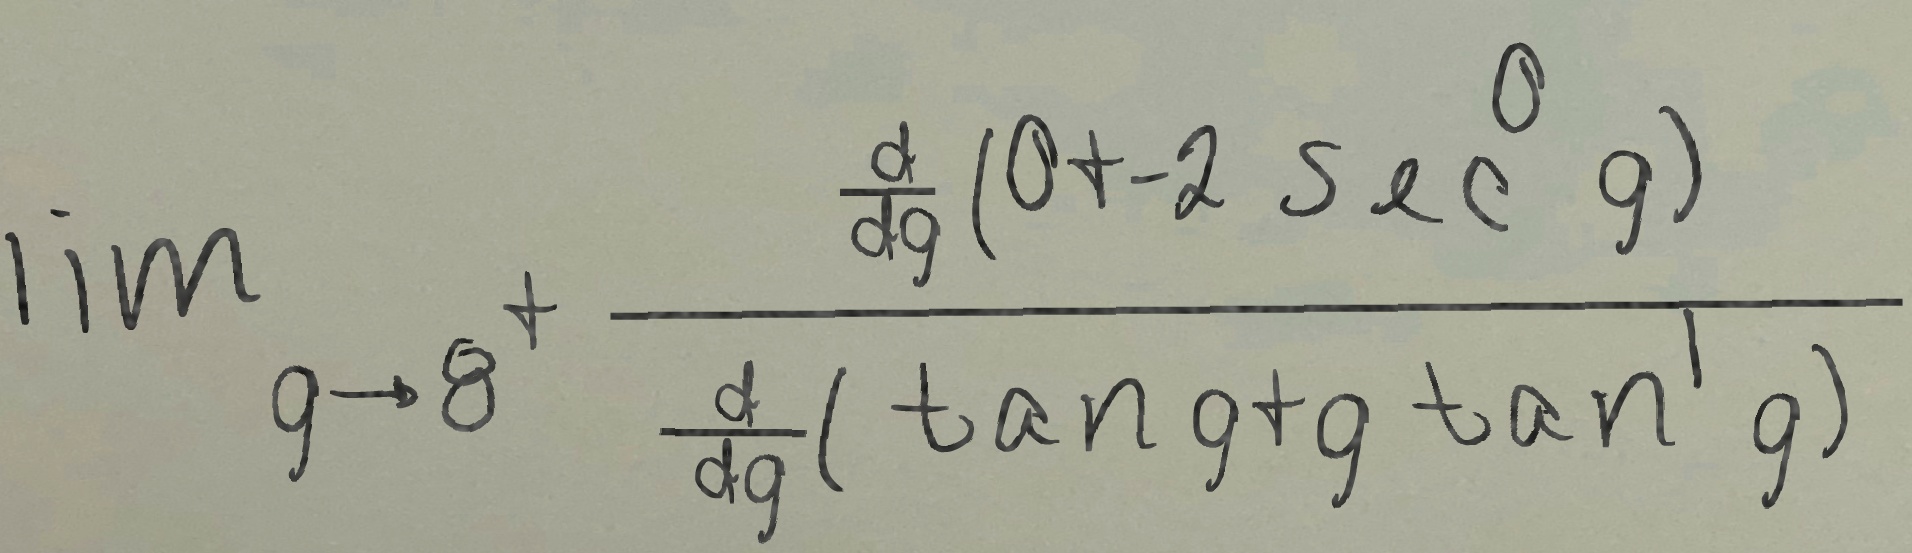 \lim_{g \to 8^+} \frac{\frac{d}{dg}(0+-2 \sec^0 g)}{\frac{d}{dg}(\tan g+g \tan^1 g)}